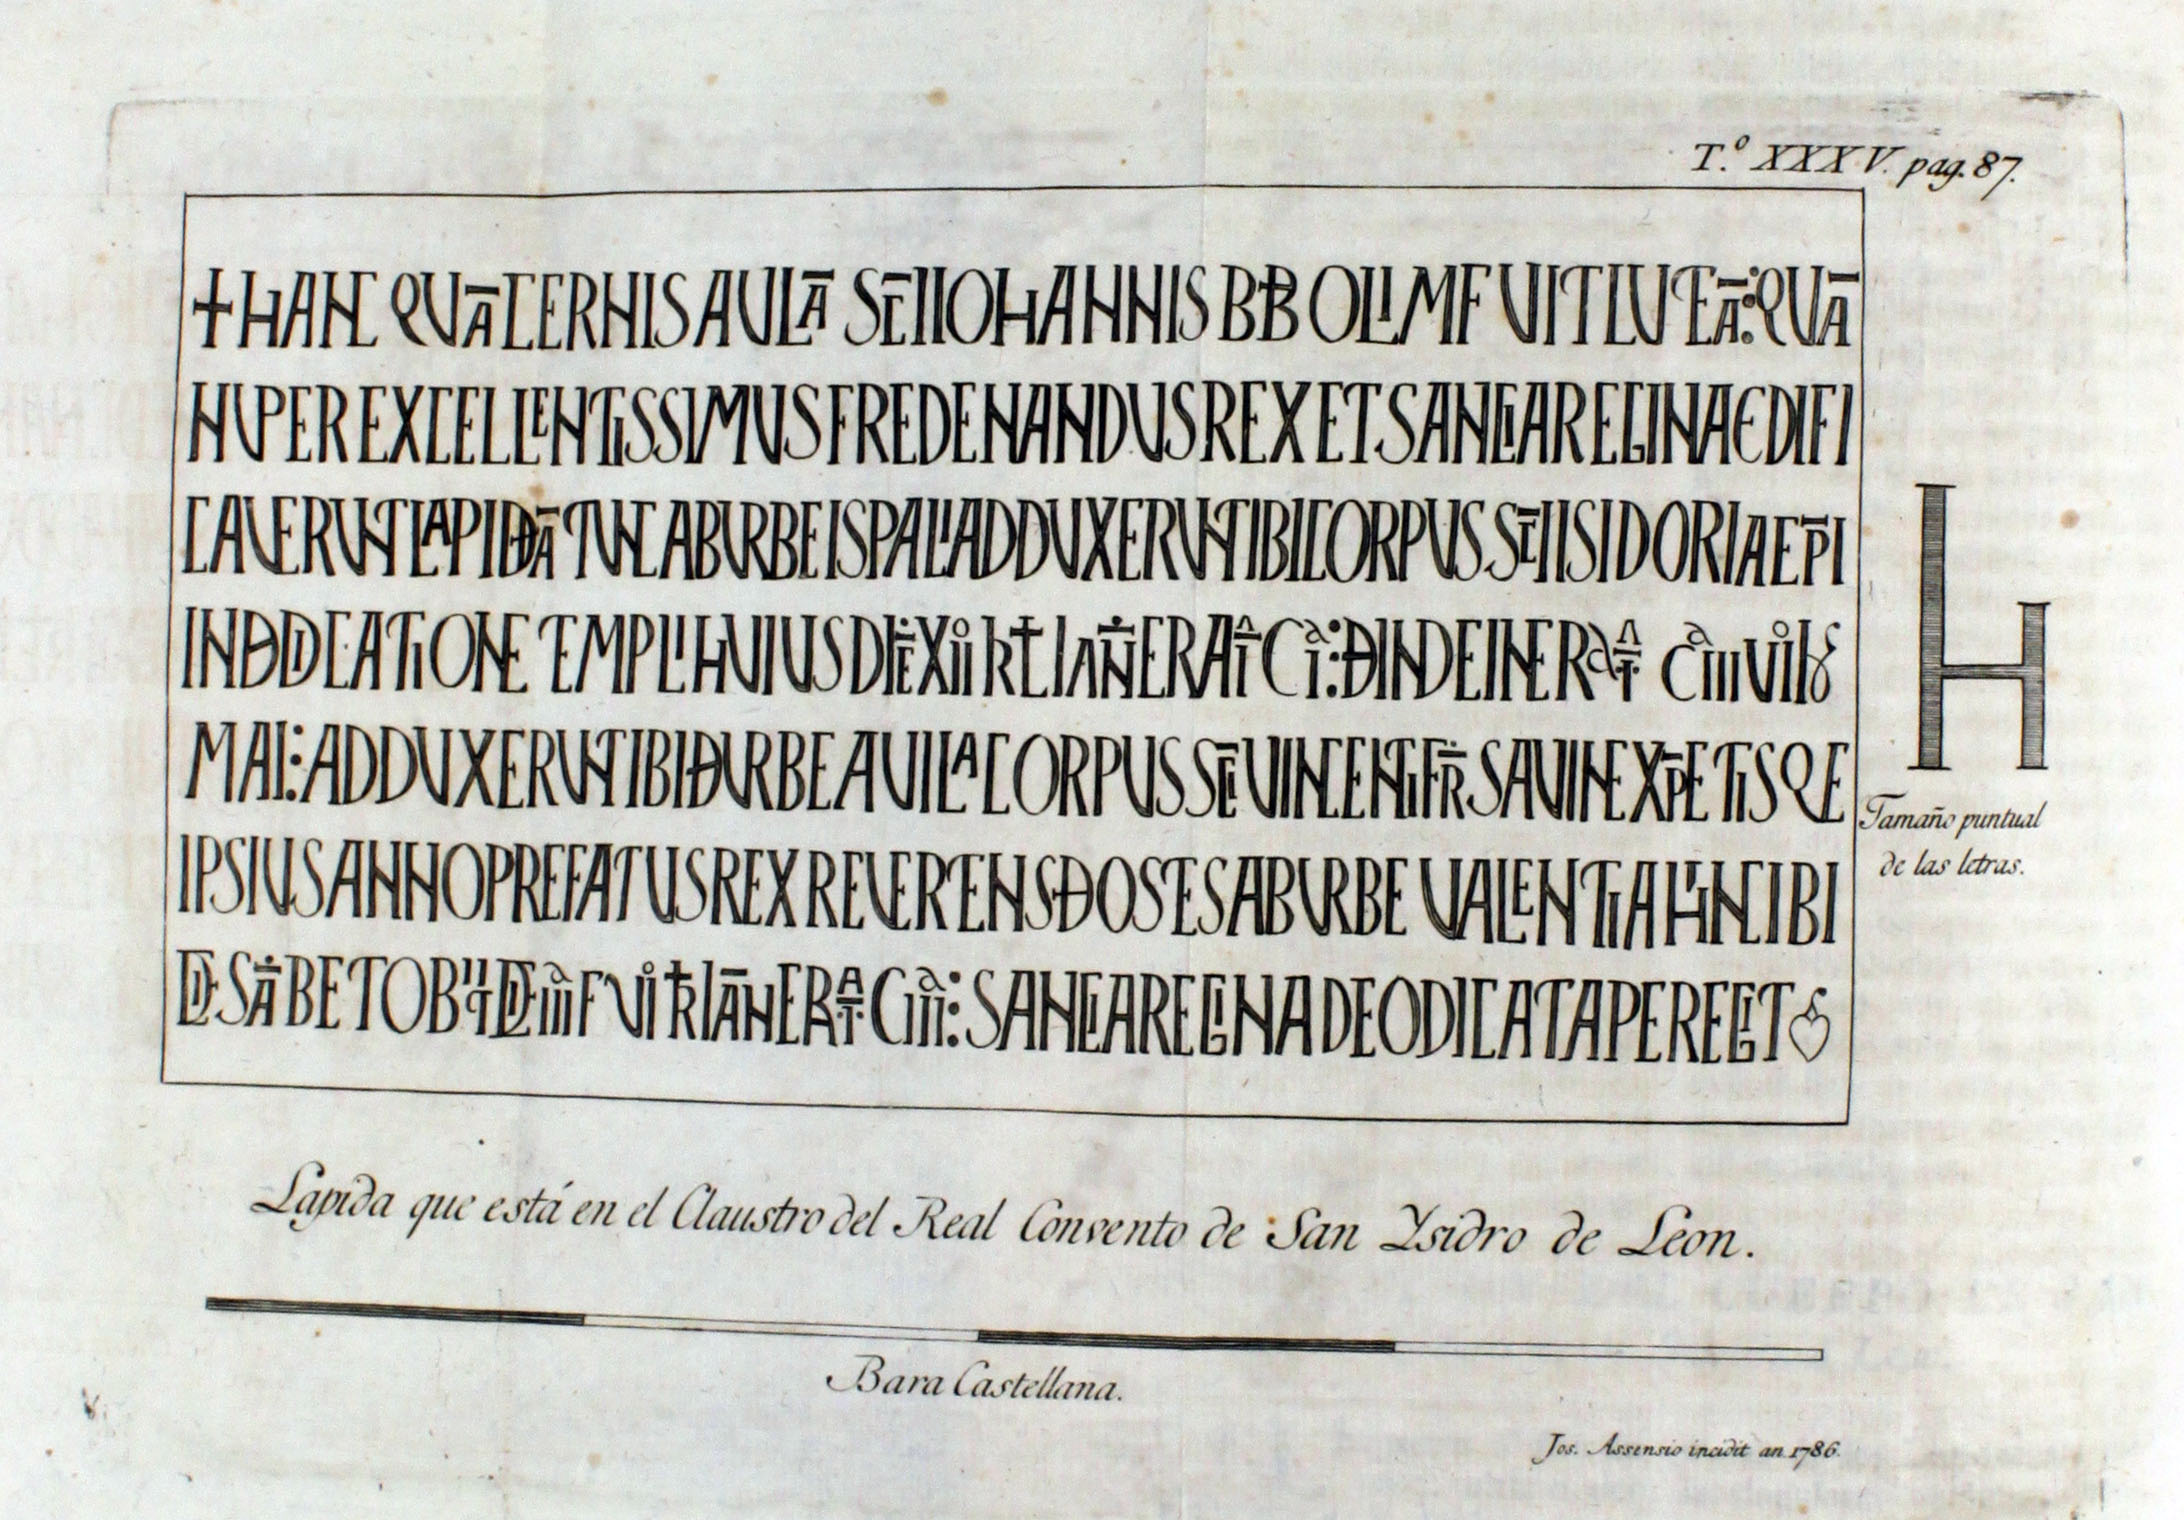 T.º XXXV. pag. 87.
+ HANC QUĀ CERNIS AULĀ SCĪ IOHANNIS BB OLIM FUIT LUTEĀ: QUĀ
NUPER EXCELLENTISSIMUS FREDENANDUS REX ET SANCIA REGINA EDIFI
CAVERUNT LAPIDEĀ TUNC AB URBE ISPALI ADDUXERUNT IBI CORPUS SCĪ ISIDORI AEPĪ
IN DEDICATIONE TEMPLI HUIUS DIĒ XII KŁ IAÑ ERA T̂ CI: DEINDE IN ERA T̂ CIII VI IDS
MAI: ADDUXERUNT IBI DE URBE AVILA CORPUS SCĪ VINCENTI FR̄S SAVINE XPETISQE
IPSIUS ANNO PREFATUS REX REVERTENS DE OSTES AB URBE VALENTIA HINC IBI
DIE SĀBE TO OBIIT DIE III F VI KŁ IĀN ERA T CIII: SANCIA REGINA DEO DICATA PEREGIT
H
Tamaño puntual
de las letras.
Lapida que está en el Claustro del Real Convento de San Ysidro de Leon.
Bara Castellana.
Jos. Assensio incidit an. 1786.